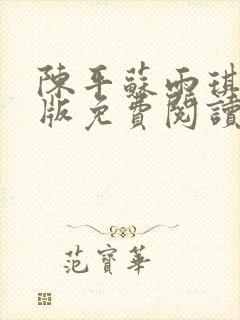 陳平蘇雨琪
版免費閱讀
范寶華